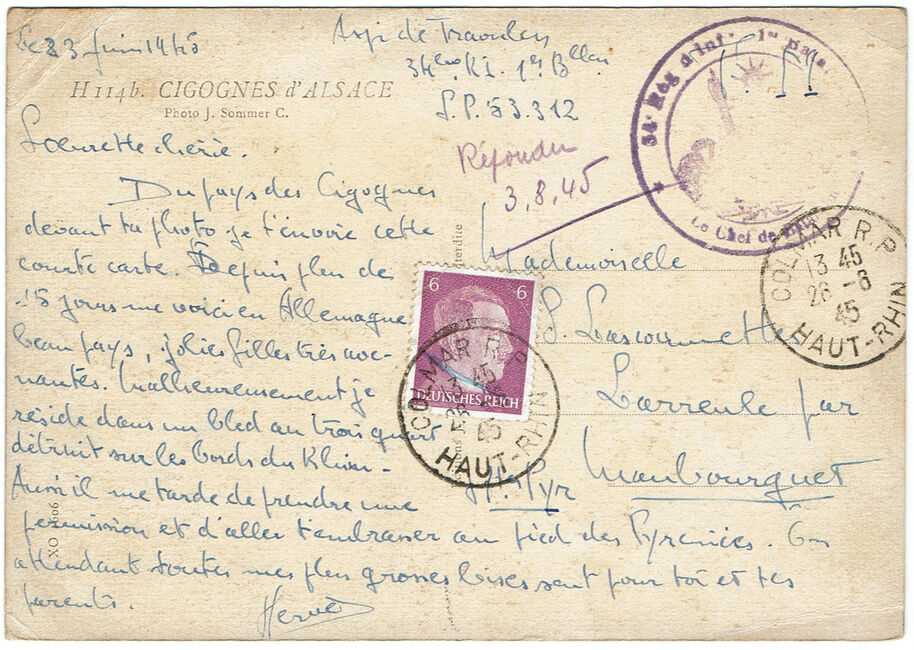 Le 23 Juin 1945
Asp. de
34ème R.I. 1er Bllon
S.P. 53.312
F. M
H 114b. CIGOGNES d'ALSACE
Photo J. Sommer C.
34e Rég. d'Inf. 1er Bata.
Le Chef de
Répondu
3.8.45
Soeurette chérie.
Du pays des Cigognes
devant ta photo je t'envoie cette
courte carte. Depuis plus de
15 jours me voici en Allemagne
beau pays, jolies filles très ave-
nantes. Malheureusement je
réside dans un bled au trois quart
détruit sur les bords du Rhin -
Aussi il me tarde de prendre une
permission et d'aller t'embrasser au pied des Pyrénées. En
attendant toutes mes plus grosses bises sont pour toi et tes
parents.
Hervé
Mademoiselle
S.
Larreule par
Maubourguet
Htes Pyr
6 6
DEUTSCHES REICH
COLMAR R.P.
13 45
26 -6
45
HAUT-RHIN
COLMAR R.P.
13 45
26 -6
45
HAUT-RHIN
interdite
XO